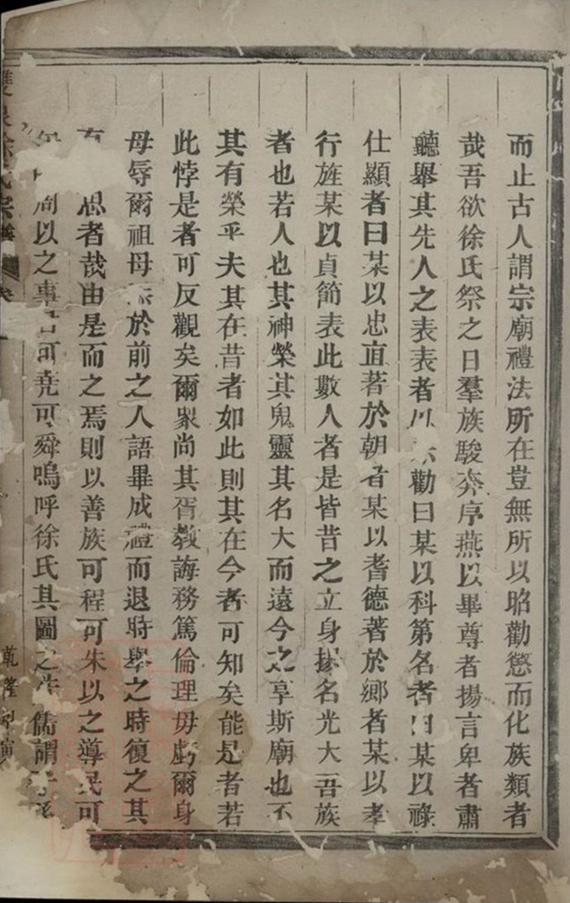 而止古人謂宗廟禮法所在豈無所以昭勸懲而化族類者
哉吾欲徐氏祭之日羣族駿奔序燕以畢尊者揚言卑者肅
聽舉其先人之表表者以示勸曰某以科第名者曰某以祿
仕顯者曰某以忠直著於朝者某以耆德著於鄉者某以孝
行旌某以貞節表此數人者是皆昔之立身揚名光大吾族
者也若人也其神榮其鬼靈其名大而遠今之享斯廟也不
其有榮乎夫其在昔者如此則其在今者可知矣能是者若
此悖是者可反觀矣爾衆尚其胥教誨務篤倫理毋虧爾身
母辱爾祖母 於前之人語畢成禮而退時舉之時復之其
有 思者哉由是而之焉則以善族可程可朱以之導民可
以之事君可堯可舜嗚呼徐氏其圖之 儒謂
雙泉徐氏宗譜 卷
乾隆